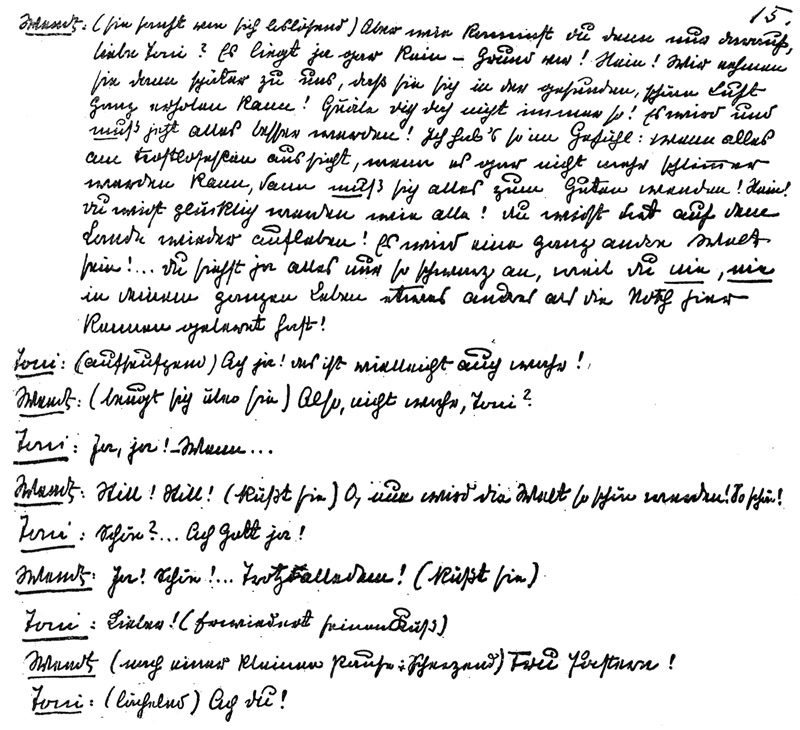 15.
Wendt: (sie sanft von sich loslösend) Aber wie kommst du denn nur darauf,
liebe Toni? Es liegt ja gar kein – Grund vor! Nein! Wir nehmen
sie dann später zu uns, daß sie sich in der gesunden, schönen Luft
ganz erholen kann! Quäle dich doch nicht immer so! Es wird und
muß jetzt alles besser werden! Ich hab's so im Gefühl: wenn alles
am trostlosesten aussieht, wenn es gar nicht mehr schlimmer
werden kann, dann muß sich alles zum Guten wenden! Nein!
du wirst glücklich werden wie alle! du wirst dort auf dem
Lande wieder aufleben! Es wird eine ganz andre Welt
sein!... du siehst ja alles nur so schwarz an, weil du nie, nie
in deinem ganzen Leben etwas andres als die Noth hier
kennen gelernt hast!
Toni: (aufseufzend) Ach ja! das ist vielleicht auch wahr!
Wendt: (beugt sich über sie) Also, nicht wahr, Toni?
Toni: Ja, ja! – Wenn...
Wendt: Still! Still! (Küßt sie) O, nun wird die Welt so schön werden! So schön!
Toni: Schön?... Ach Gott ja!
Wendt: Ja! Schön!... Trotzalledem! (Küßt sie)
Toni: Lieber! (Erwiedert seinen Kuß)
Wendt (nach einer kleinen Pause; Scherzend) Frau Pastern!
Toni: (lächelnd) Ach du!